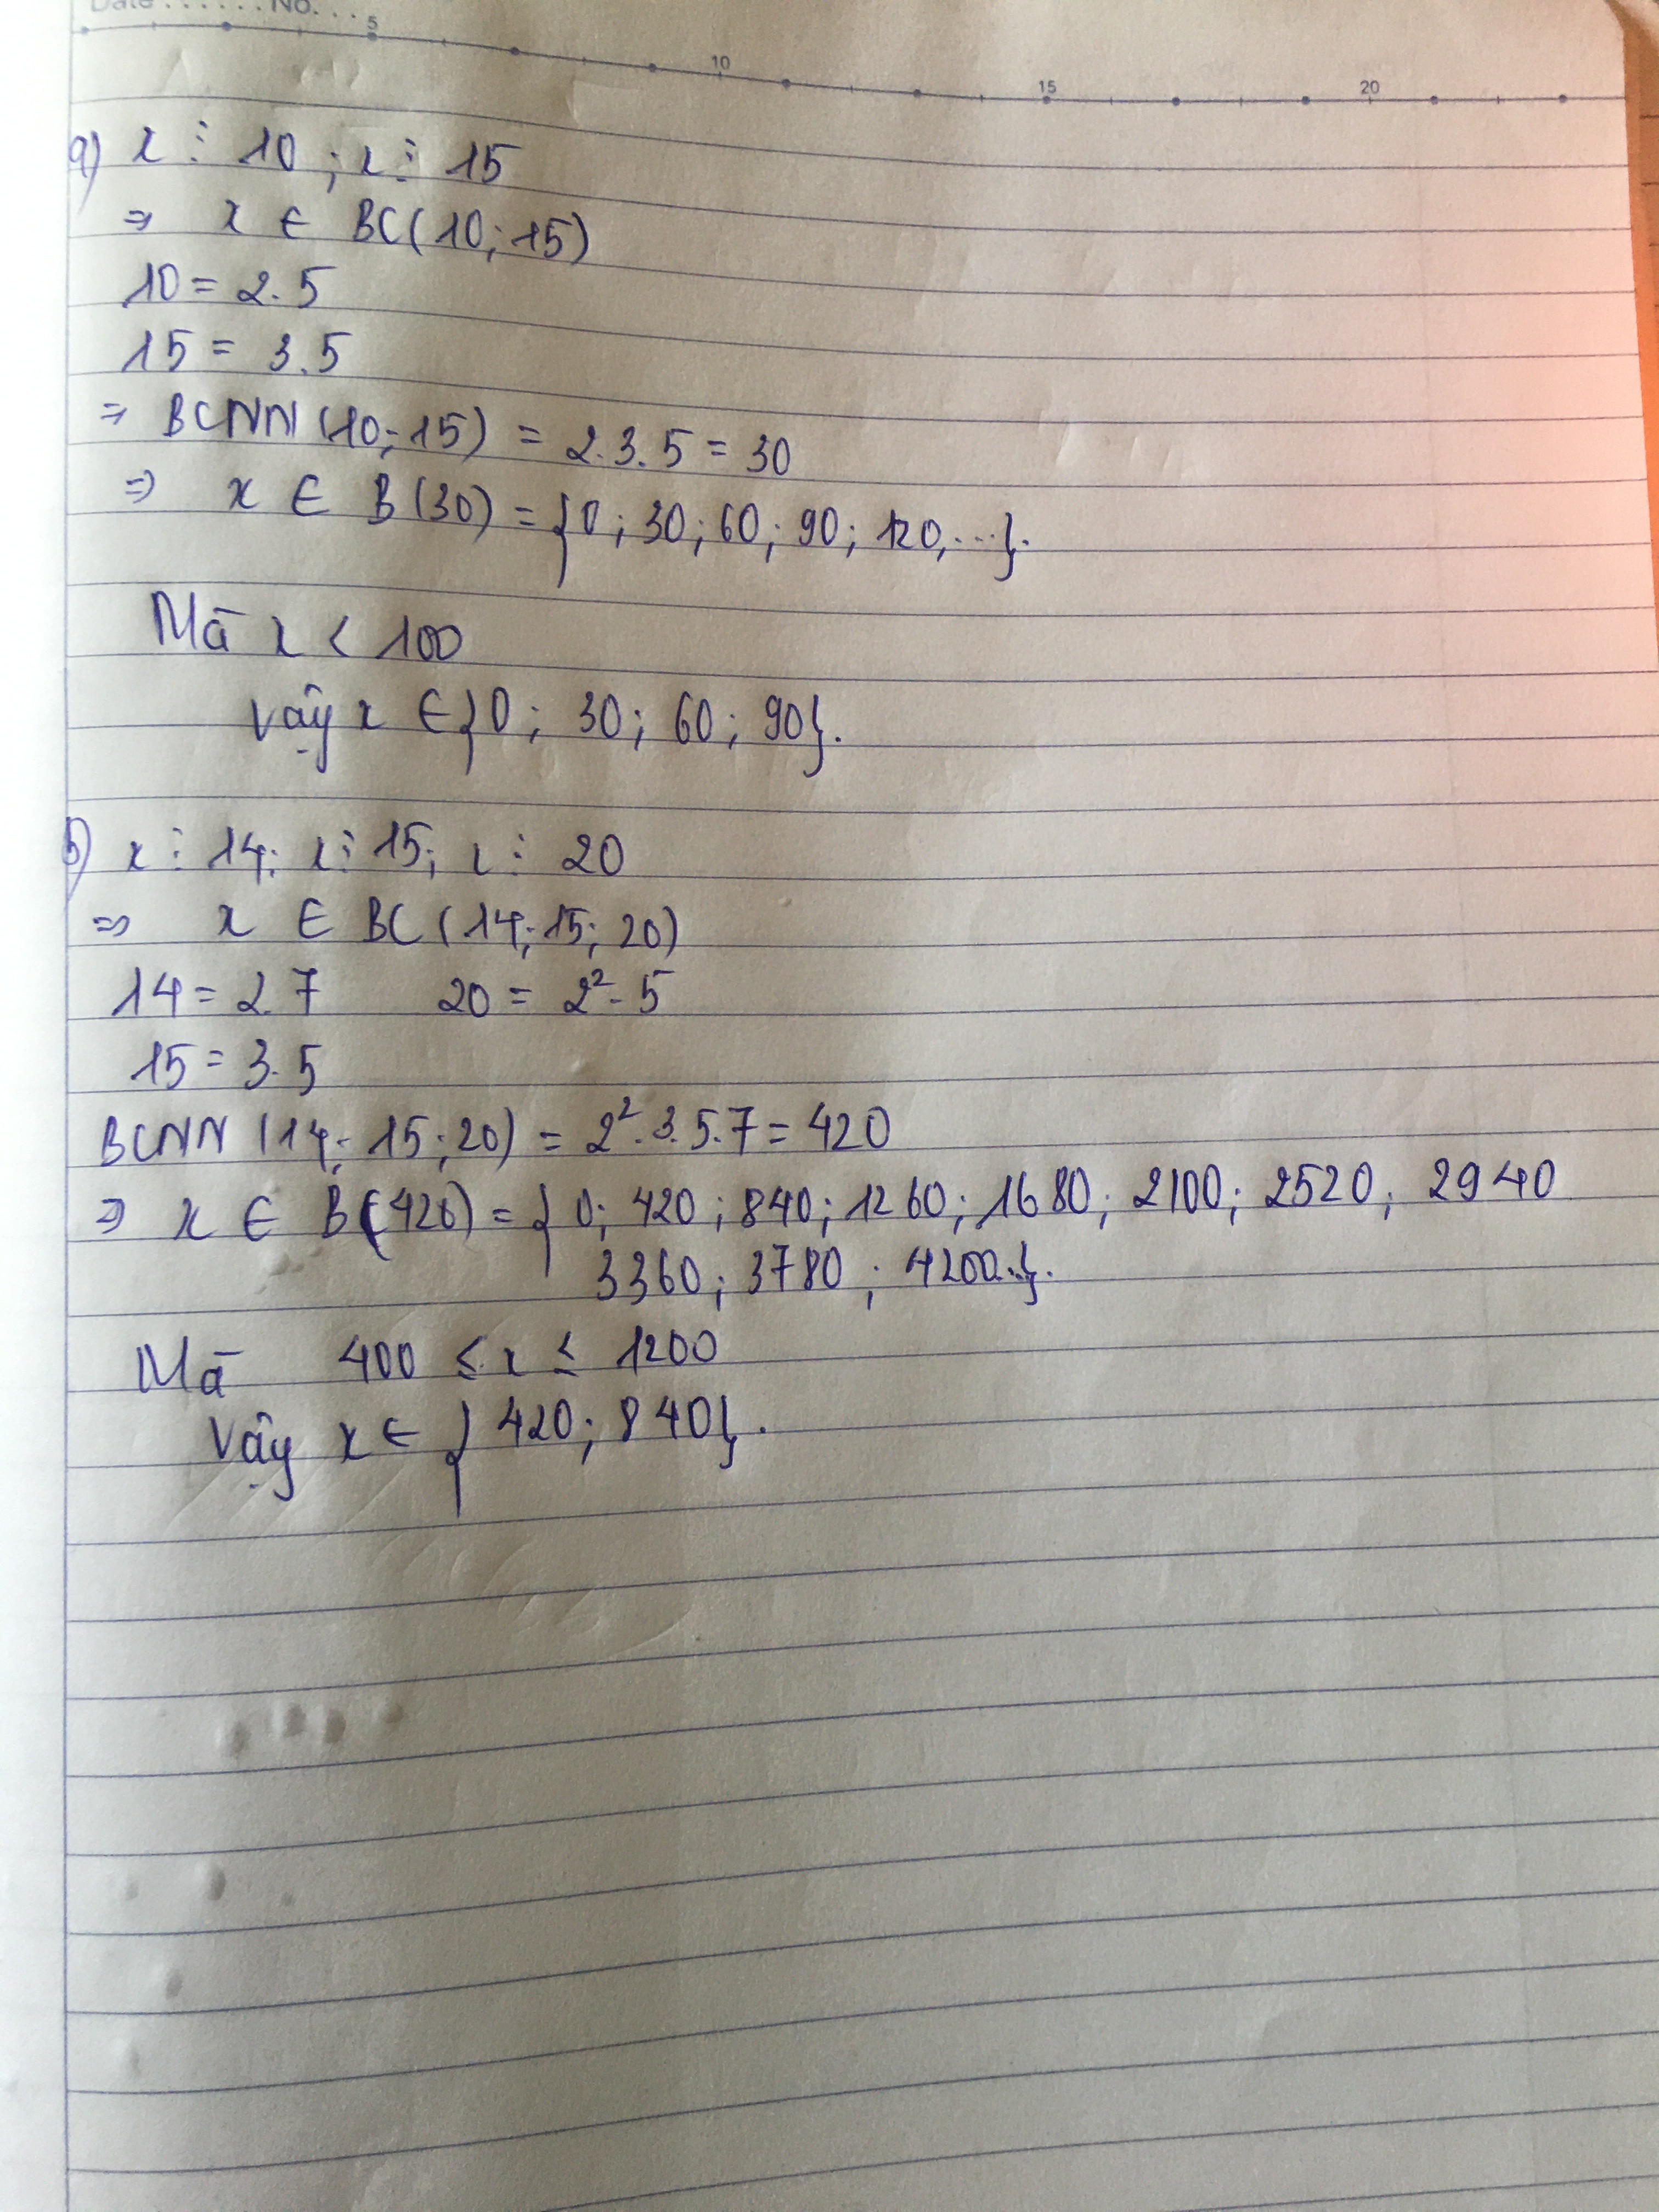 Date......No....
5
10
15
20
a) x ⋮ 10 ; x ⋮ 15
⇒ x ∈ BC(10; 15)
10 = 2.5
15 = 3.5
⇒ BCNN (10; 15) = 2.3.5 = 30
⇒ x ∈ B(30) = {0 ; 30 ; 60 ; 90 ; 120,...}.
Mà x < 100
Vậy x ∈ {0 ; 30 ; 60 ; 90}.
b) x ⋮ 14; x ⋮ 15; x ⋮ 20
⇒ x ∈ BC (14; 15; 20)
14 = 2.7 20 = 2².5
15 = 3.5
BCNN (14; 15; 20) = 2².3.5.7 = 420
⇒ x ∈ B(420) = {0; 420 ; 840 ; 1260 ; 1680; 2100; 2520; 2940
3360; 3780 ; 4200..}.
Mà 400 ≤ x ≤ 1200
Vậy x ∈ {420; 840}.